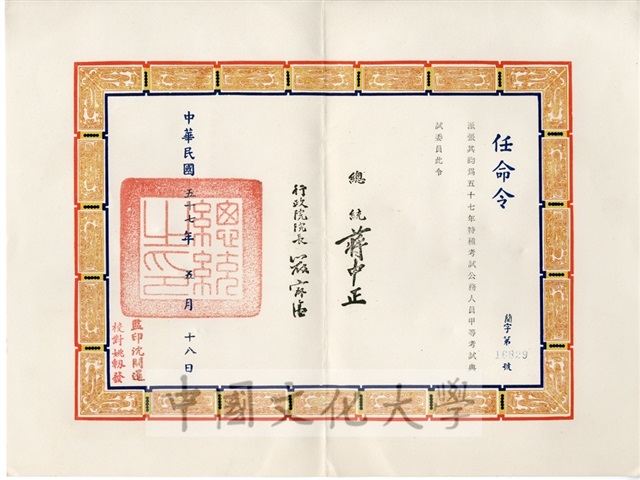 任命令
派張其昀為五十七年特種考試公務人員甲等考試典
試委員此令
簡字第16929號
總統 蔣中正
行政院院長 嚴家淦
中華民國五十七年五月十八日
總統之印
監印沈開運
校對姚軔發
中國文化大學